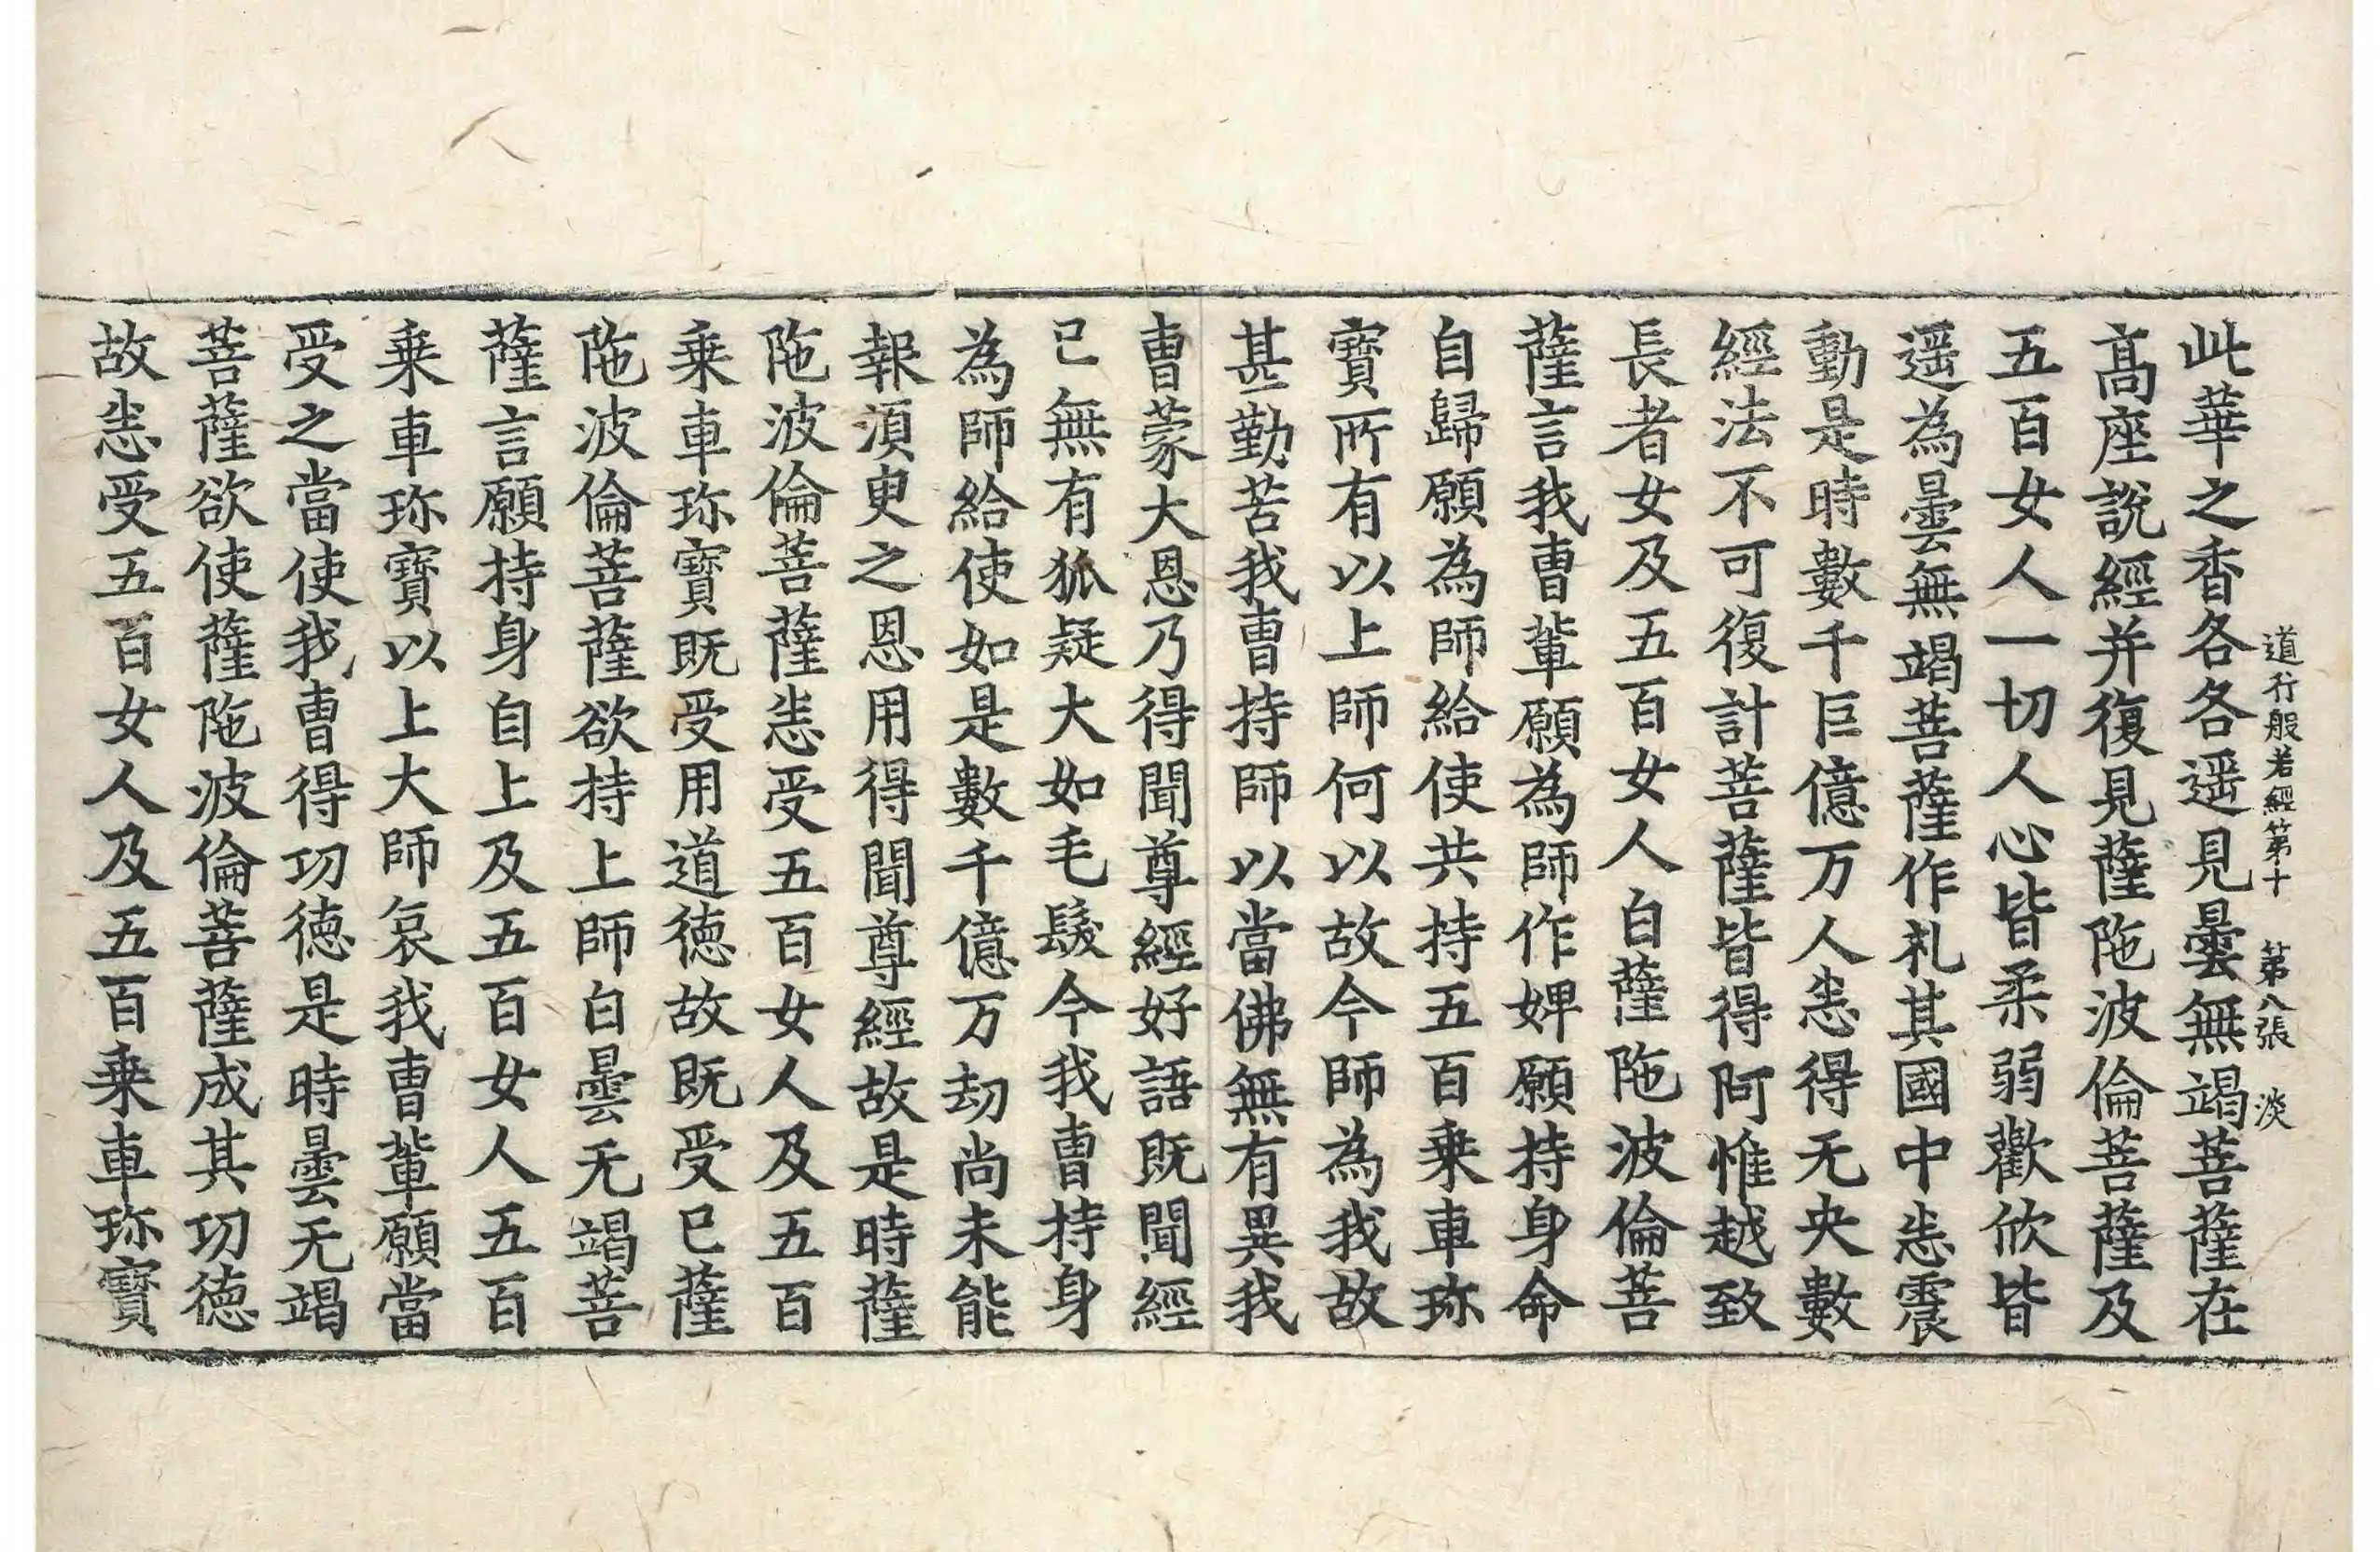 道行般若經第十 第八張 淡
此華之香各各遥見曇無竭菩薩在
髙座說經并復見薩陁波倫菩薩及
五百女人一切人心皆柔弱歡欣皆
遥為曇無竭菩薩作礼其國中悉震
動是時數千巨億万人悉得无央數
經法不可復計菩薩皆得阿惟越致
長者女及五百女人白薩陁波倫菩
薩言我曹輩願為師作婢願持身命
自歸願為師給使共持五百乗車珎
寶所有以上師何以故今師為我故
甚勤苦我曹持師以當佛無有異我
曹蒙大恩乃得聞尊經好語既聞經
已無有狐疑大如毛髮今我曹持身
為師給使如是數千億万劫尚未能
報湏臾之恩用得聞尊經故是時薩
陁波倫菩薩悉受五百女人及五百
乗車珎寶既受用道徳故既受已薩
陁波倫菩薩欲持上師白曇无竭菩
薩言願持身自上及五百女人五百
乗車珎寶以上大師哀我曹輩願當
受之當使我曹得功徳是時曇无竭
菩薩欲使薩陁波倫菩薩成其功徳
故悉受五百女人及五百乗車珎寶